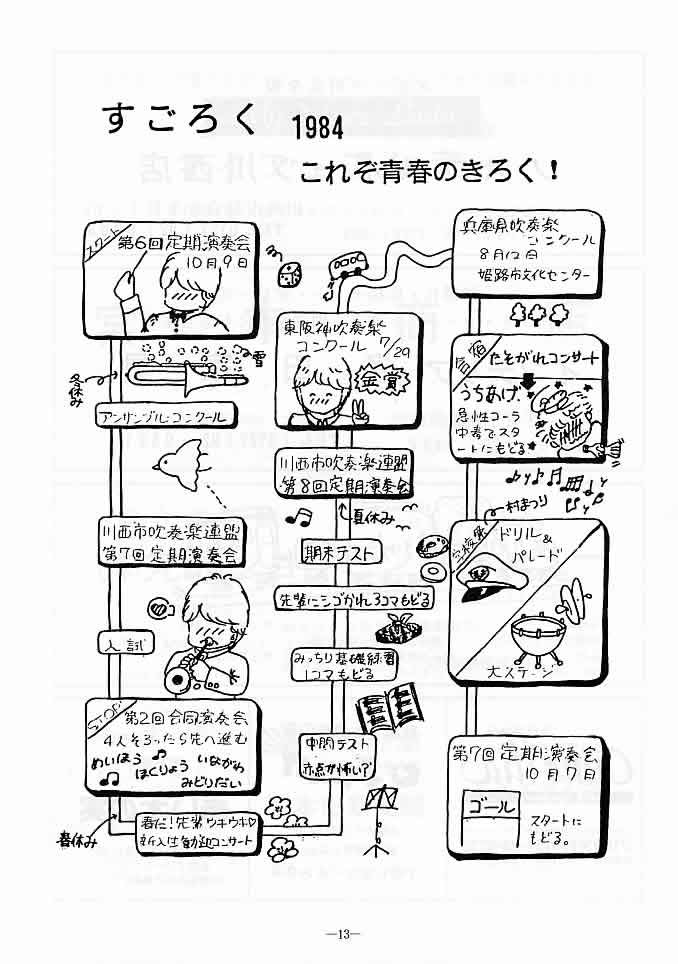 すごろく 1984
これぞ青春のきろく！
スタート
第6回定期演奏会
10月9日
雪
冬休み
アンサンブル・コンクール
川西市吹奏楽連盟
第7回定期演奏会
入試
STOP
第2回合同演奏会
4人そろったら先へ進む
めいほう
ほくりょう いながわ
みどりだい
春休み
春だ!先輩ウキウキ♡
新入生歓迎コンサート
中間テスト
赤点が怖い?
みっちり基礎練習
1コマもどる
先輩にシゴかれ3コマもどる
期末テスト
夏休み
川西市吹奏楽連盟
第8回定期演奏会
東阪神吹奏楽
コンクール 7/29
金賞
兵庫県吹奏楽
コンクール
8月12日
姫路市文化センター
合宿
たそがれコンサート
うちあげ
急性コーラ
中毒でスタ
ートにもどる
村まつり
ドリル&
パレード
大ステージ
第7回定期演奏会
10月7日
ゴール
スタートに
もどる。
—13—